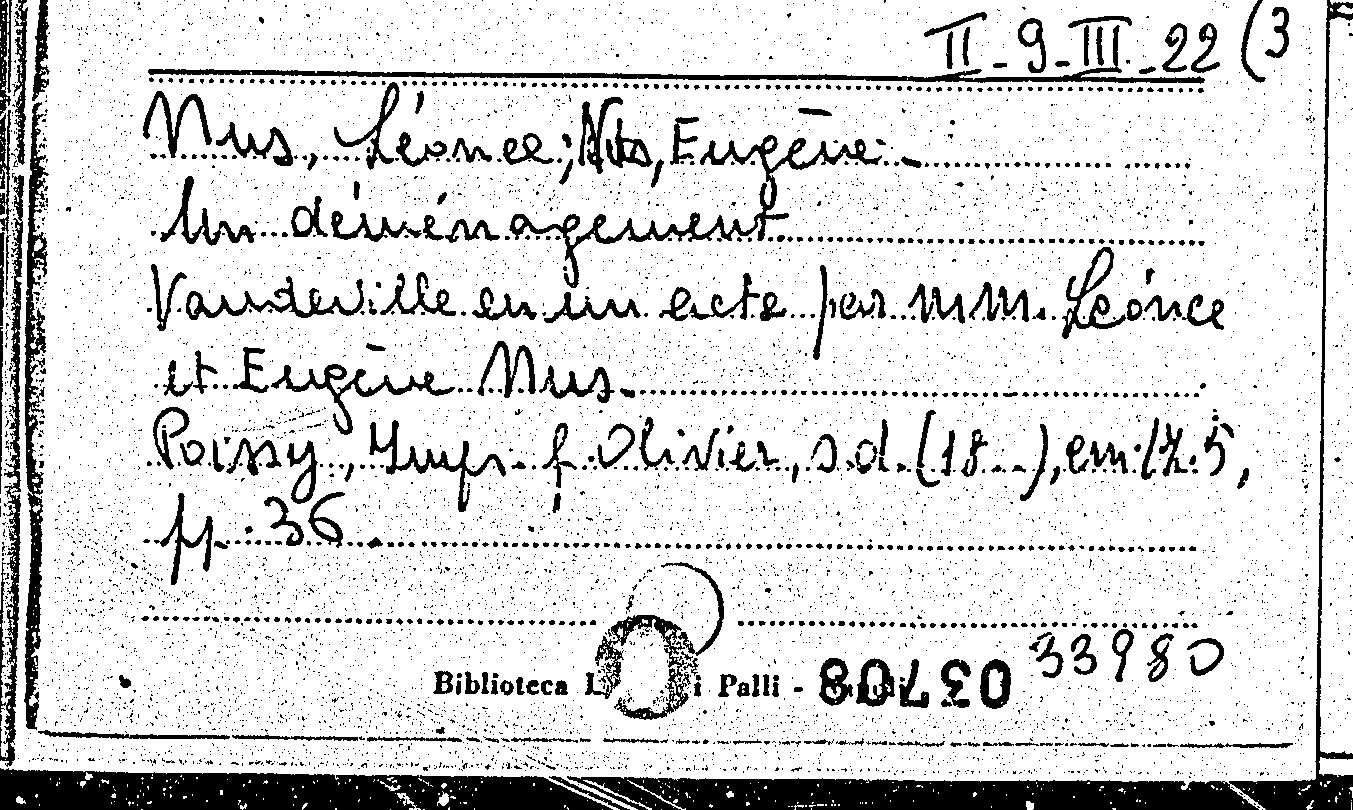 II-9-III-22 (3
Nus, Léonce; Nus, Eugène.-
Un déménagement
Vaudeville en un acte par MM. Léonce
et Eugène Nus.
Poissy, Imp. f. Olivier, s.d. (18--), cm. 17.5,
pp. 36.
33980
Biblioteca L i Palli -
03708